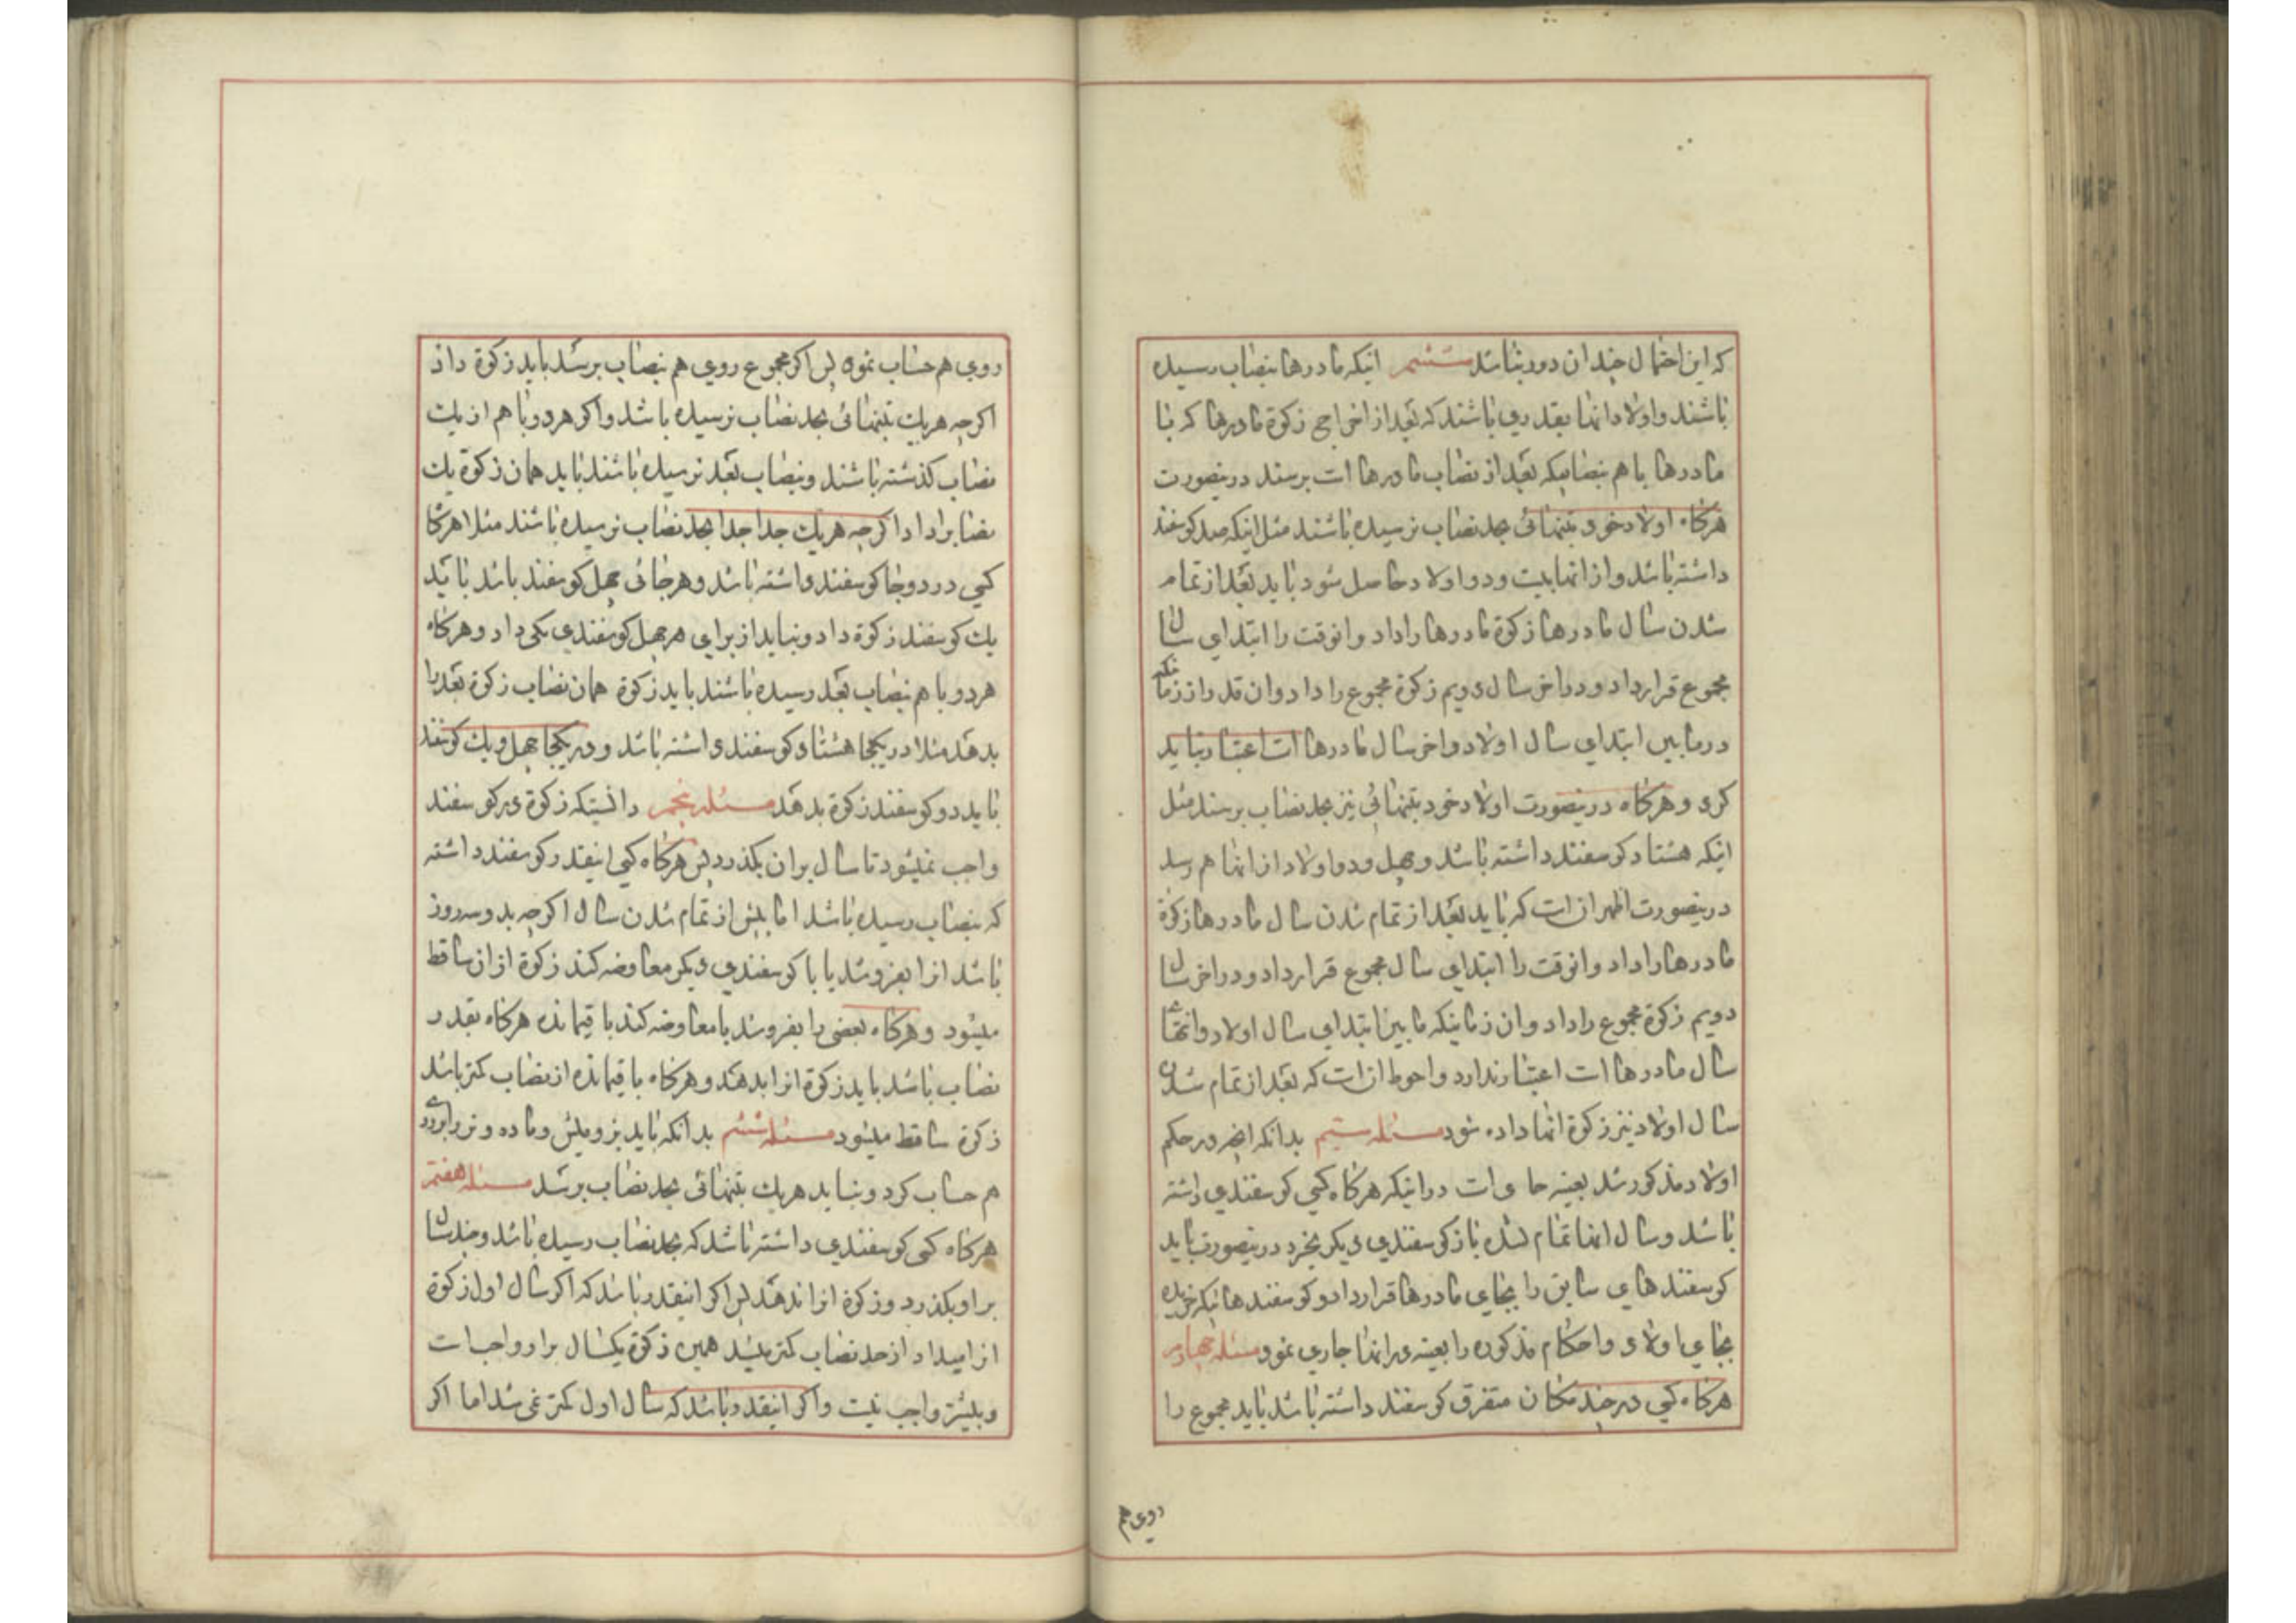 که این احتمال چندان دور نباشد ششم اینکه مادرها بنصاب رسیده
باشند و اولاد انها بقدری باشند که بعد از اخراج زکوة مادرها که با
مادرها با هم بنصابیکه بعد از نصاب مادرها است برسند درینصورت
هرکاه اولاد خود بتنهائی بحد نصاب نرسیده باشند مثل اینکه صد کوسفند
داشته باشد و از انها بیست و دو اولاد حاصل شود باید بعد از تمام
شدن سال مادرها زکوة مادرها را داد و انوقت را ابتدای سال
مجموع قرار داد و در اخر سال دویم زکوة مجموع را داد و ان قدر از زمانیکه
در مابین ابتدای سال اولاد و اخر سال مادرها است اعتبار نباید
کرد و هرکاه درینصورت اولاد خود بتنهائی نیز بحد نصاب برسند مثل
اینکه هشتاد کوسفند داشته باشد و چهل و دو اولاد از انها هم رسد
درینصورت اظهر ان است که باید بعد از تمام شدن سال مادرها زکوة
مادرها را داد و انوقت را ابتدای سال مجموع قرار داد و در اخر سال
دویم زکوة مجموع را داد و ان زمانیکه مابین ابتدای سال اولاد و انتهای
سال مادرها است اعتبار ندارد و احوط ان است که بعد از تمام شدن
سال اولاد نیز زکوة انها داده شود مسئله سیم بدانکه انچه در حکم
اولاد مذکور شد بعینه جاری است در اینکه هرکاه کسی کوسفندی داشته
باشد و سال انها تمام نشده باز کوسفندی دیکر بخرد درینصورت باید
کوسفندهای سابق را بجای مادرها قرار داد و کوسفندهائیکه خریده
بجای اولاد و احکام مذکوره را بعینه در انها جاری نمود مسئله چهارم
هرکاه کسی در چند مکان متفرق کوسفند داشته باشد باید مجموع را
روی هم
روی هم حساب نموه پس اکر مجموع روی هم بنصاب برسد باید زکوة داد
اکرچه هر یک بتنهائی بحد نصاب نرسیده باشد و اکر هر دو با هم از یک
نصاب کذشته باشند و بنصاب بعد نرسیده باشند باید همان زکوة یک
نصابرا داد اکرچه هر یک جدا جدا بحد نصاب نرسیده باشند مثلا هرکا
کسی در دو جا کوسفند داشته باشد و هر جائی چهل کوسفند باشد باید
یک کوسفند زکوة داد و نباید از برای هر چهل کوسفندی یکی داد و هرکاه
هر دو با هم بنصاب بعد رسیده باشند باید زکوة همان نصاب بعد را
بدهد مثلا در یکجا هشتاد کوسفند داشته باشد و در یکجا چهل و یک کوسفند
باید دو کوسفند زکوة بدهد مسئله پنجم دانستیکه زکوة در کوسفند
واجب نمیشود تا سال بران بکذرد پس هرکاه کسی اینقدر کوسفند داشته
که بنصاب رسیده باشد اما پیش از تمام شدن سال اکرچه بدو سه روز
باشد انرا بفروشد یا با کوسفندی دیکر معاوضه کند زکوة از ان ساقط
میشود و هرکاه بعضی را بفروشد یا معاوضه کند باقیمانده هرکاه بقدر
نصاب باشد باید زکوة انرا بدهد و هرکاه باقیمانده از نصاب کمتر باشد
زکوة ساقط میشود مسئله ششم بدانکه باید بز و میش و ماده و نر را بر روی
هم حساب کرد و نباید هر یک بتنهائی بحد نصاب برسد مسئله هفتم
هرکاه کسی کوسفندی داشته باشد که بحد نصاب رسیده باشد و چند سال
بر او بکذرد و زکوة انرا ندهد پس اکر اینقدر باشد که اکر سال اول زکوة
انرا میداد از حد نصاب کمتر میشد همین زکوة یکسال بر او واجب است
و بیشتر واجب نیست و اکر اینقدر باشد که سال اول کمتر نمی شد اما اکر